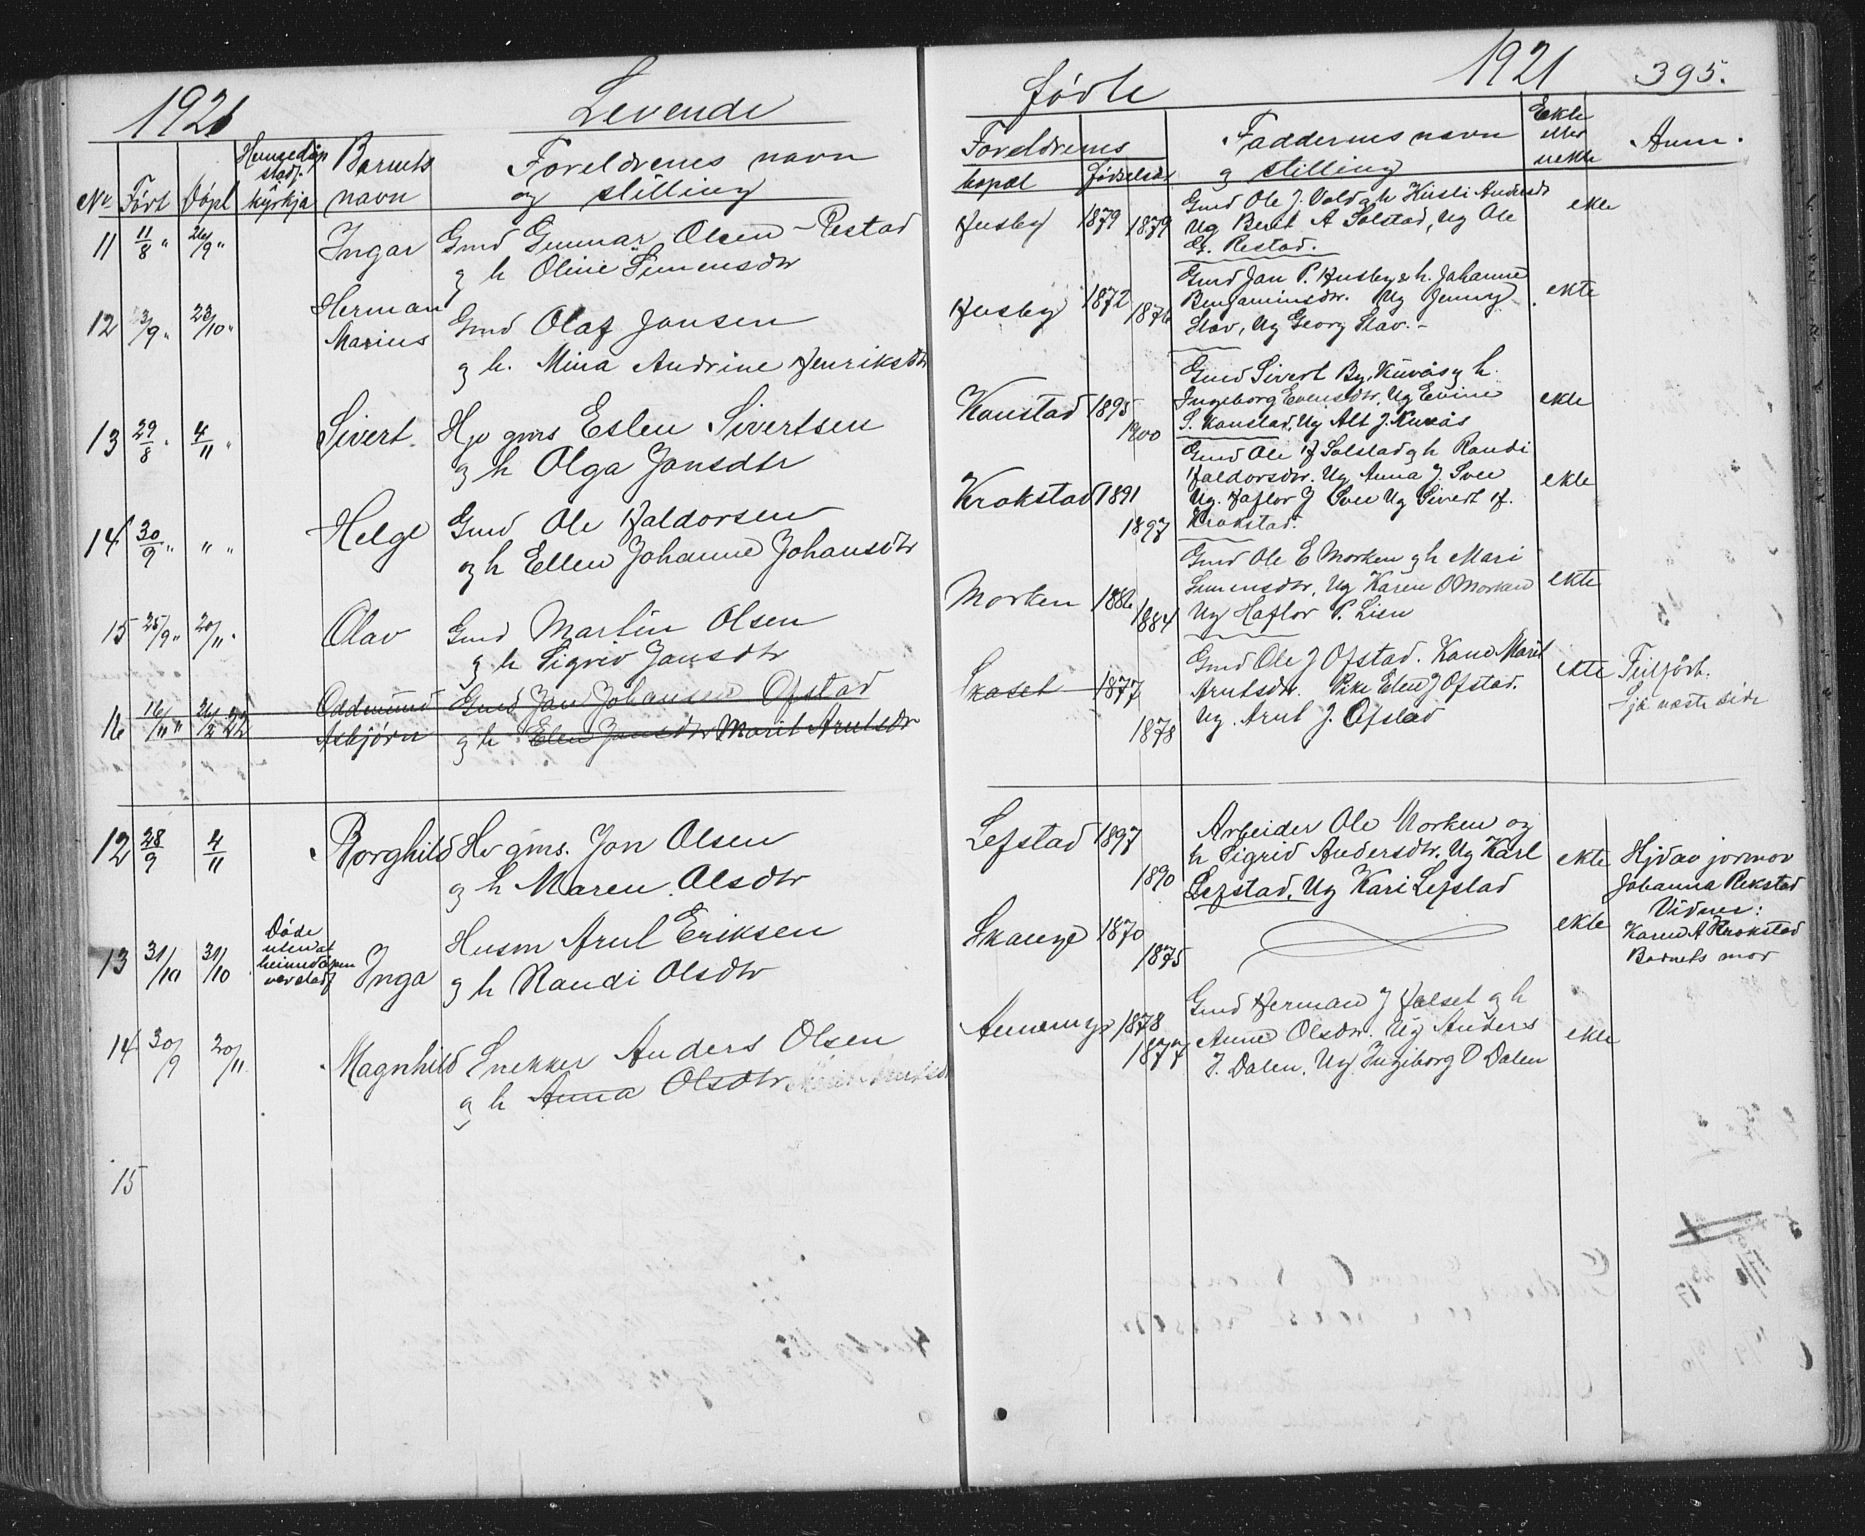 1921 Levende
Nr Født Døpt Heimedøp stadf. i kyrkja Barnets navn Foreldrenes navn og stilling
11 11/8 " 26/9 " Ingar Gmd Gunnar Olsen Restad
g h Oline Simensdtr
12 23/9 " 23/10 " Herman Gmd Olaf Jansen
Marius g h. Mina Andrine Henriksdtr
13 29/8 " 4/11 " Sivert. Hjv gms Eslen Sivertsen
og h Olga Jonsdtr
14 30/9 " " " Helge Gmd Ole Haldorsen
og h Ellen Johanne Johansdtr
15 25/9 " 20/11 " Olav Gmd Martin Olsen
g h Sigrid Jansdtr
16 16/11 " 26/2 22 Oddmund Gmd Jan Johansen Ofstad
Asbjørn g h Elen Jansdtr Marit Arntsdtr
12 28/9 4/11 Borghild Hv gms. Jon Olsen
og h Maren Olsdtr
13 31/10 31/10 Døde uten at heimedåpen var stadf Inga Husm Arnt Eriksen
g h Randi Olsdtr
14 30/9 20/11 Magnhild Snekker Anders Olsen
g h Anna Olsdtr
15
fødte 1921 395.
Foreldrenes Faddernes navn Ekte
bopæl Fødselsår og stilling eller uekte Anm.
Husby 1879 1879 Gmd Ole J. Vold g h Kirsti Andersdtr ekte
Ug Berit A Solstad, Ug Ole
G. Restad.
Husby 1872 1876 Gmd Jan P. Husby & h. Johanne ekte
Benjaminsdtr. Ug Jenny
Slav, Ug Georg Slav. -
Kanstad 1895 1900 Gmd Sivert By, Kuvås g h. ekte
Ingeborg Evensdtr, Ug Evine
S. Kanstad, Ug Alt J. Kuvås
Krokstad 1891 1897 Gmd Ole H Solstad g h Randi ekte
Haldorsdtr. Ug Anna J Svee
Ug. Haflor J Svee Ug Sivert H.
Krokstad.
Morken 1886 1884 Gmd Ole E Morken g h Mari ekte
Simensdtr, Ug Karen O Morken
Ug Haflor P. Lien
Skaset 1877 1878 Gmd Ole J Ofstad. Kone Marit ekte Feilført.
Arntsdtr. Pike Elen J Ofstad. Sjå næste side
Ug. Arnt J. Ofstad
Lefstad 1897 1890 Arbeider Ole Morken og ekte Hjdav jormor
h Sigrid Andersdtr. Ug Karl Johanna Rekstad
Lefstad, Ug Kari Lefstad Vidner:
Skauge 1870 1875 ekte Karen A Krokstad
Barnets mor
1878 1877 Gmd Herman J Halset g h ekte
Anne Olsdtr. Ug Anders
J. Dalen, Ug Ingeborg O Dalen